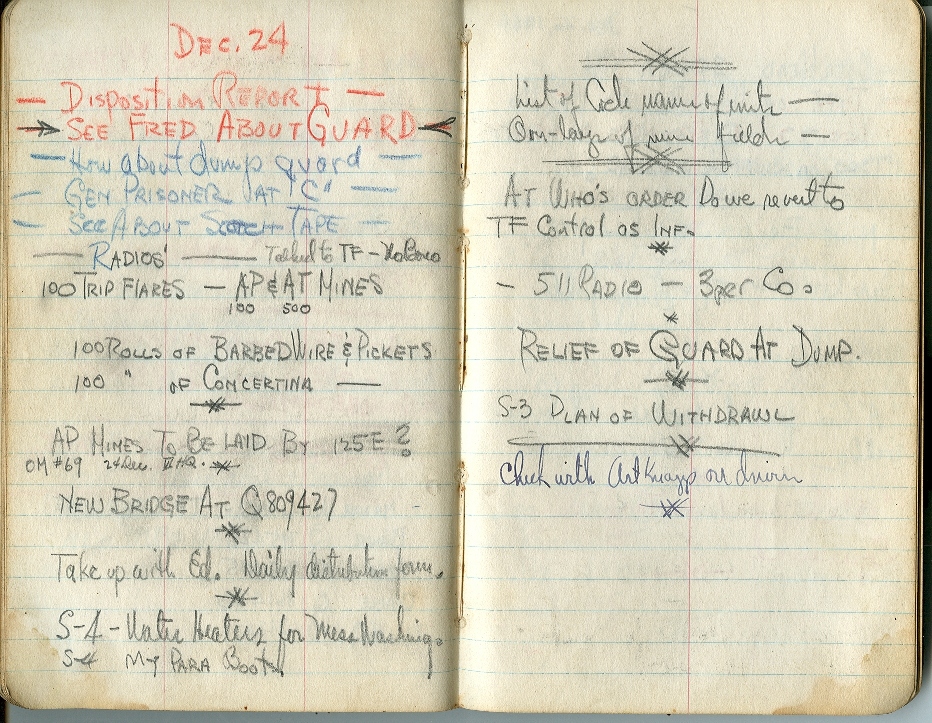 DEC. 24
— DISPOSITION REPORT —
→ SEE FRED ABOUT GUARD ←
— How about dump guard —
— GEN PRISONER AT "C" —
— SEE ABOUT SCOTCH TAPE —
— RADIOS' — Talked to TF –
100 TRIP FLARES — AP & AT MINES
100 500
100 ROLLS OF BARBED WIRE & PICKETS
100 " OF CONCERTINA —
AP MINES TO BE LAID BY 125E ?
OM #69 24 Dec. HQ.
NEW BRIDGE AT Q809427
Take up with Ed. Daily distribution form.
S-4 - Water Heaters for Mess Washing.
S-4 MY PARA BOOTS
List of Code names of units —
Over-lays of mine fields —
AT WHO'S ORDER Do we revert to
TF Control as INF.
— 511 RADIO — 3 per Co.
RELIEF OF GUARD AT DUMP.
S-3 PLAN OF WITHDRAWL
Check with Art Knapp on